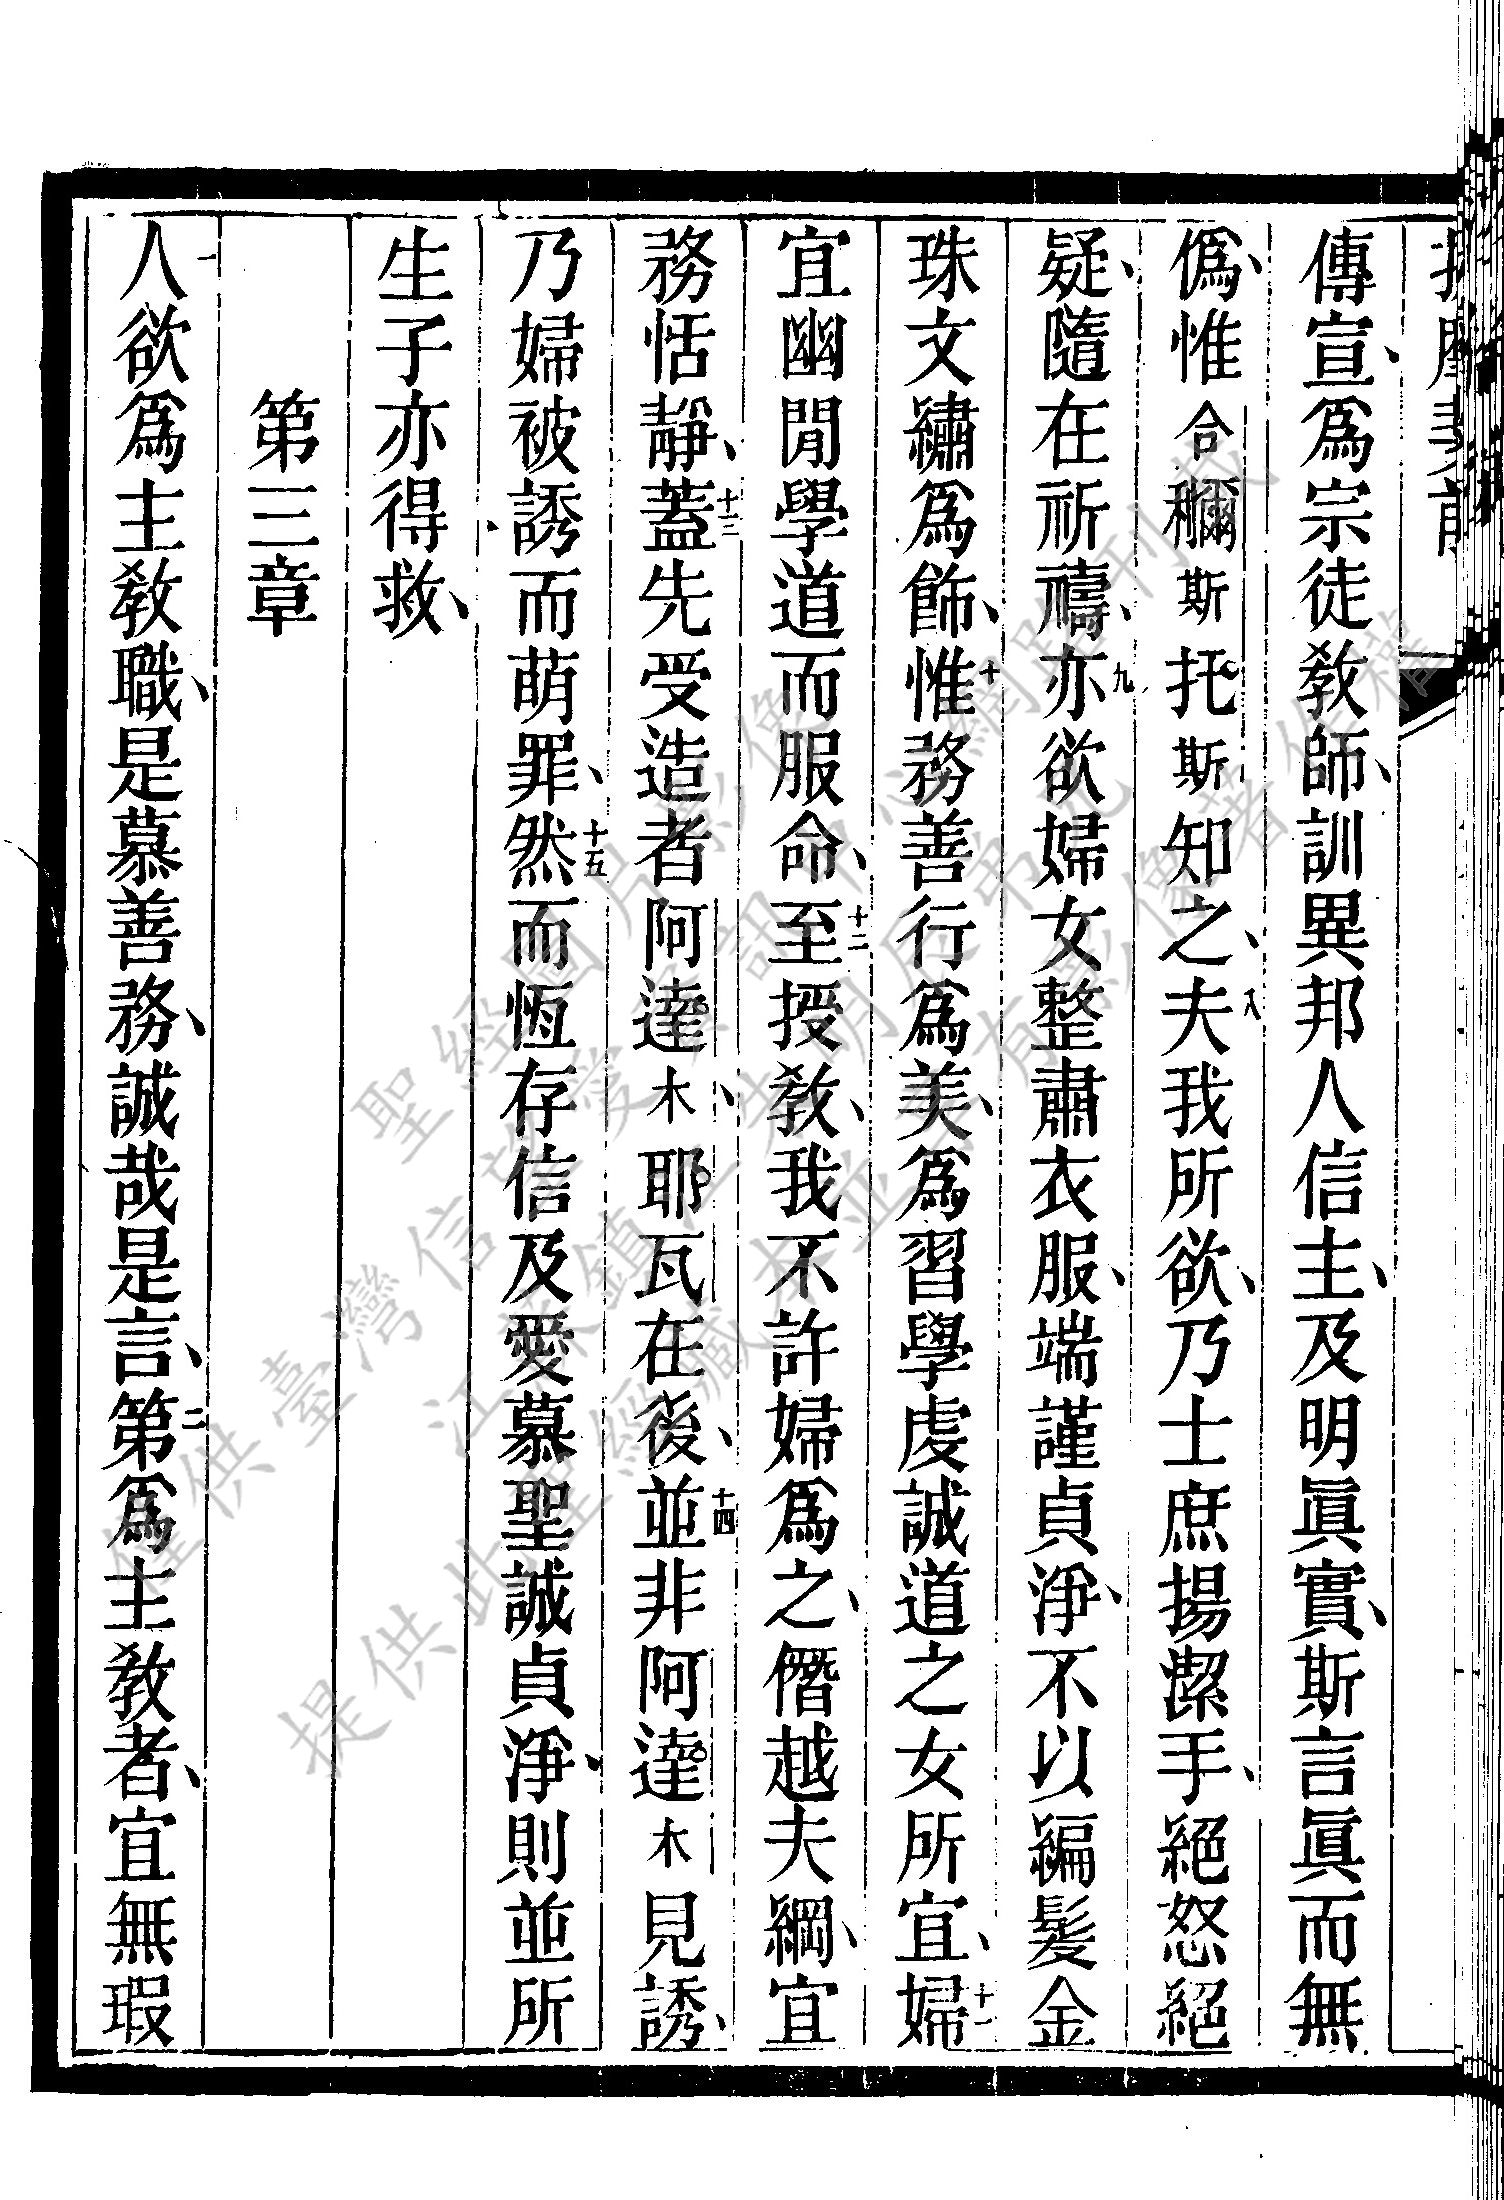 傳宣、爲宗徒教師、訓異邦人信主、及明眞實、斯言眞而無
僞、惟合穪斯托斯知之、八夫我所欲、乃士庶揚潔手、絕怒絕
疑、隨在祈禱、九亦欲婦女整肅衣服、端謹貞淨、不以編髮金
珠文繡爲飾、十惟務善行爲美、爲習學虔誠道之女所宜、十一婦
宜幽閒學道而服命、十二至授教、我不許婦爲之、僭越夫綱、宜
務恬靜、十三蓋先受造者阿達木、耶瓦在後、十四並非阿達木見誘、
乃婦被誘而萌罪、十五然而恆存信及愛慕聖誠貞淨、則並所
生子亦得救、
第三章
一人欲爲主教職、是慕善務、誠哉是言、二第爲主教者、宜無瑕
聖經圖片影像
僅供臺灣信望愛